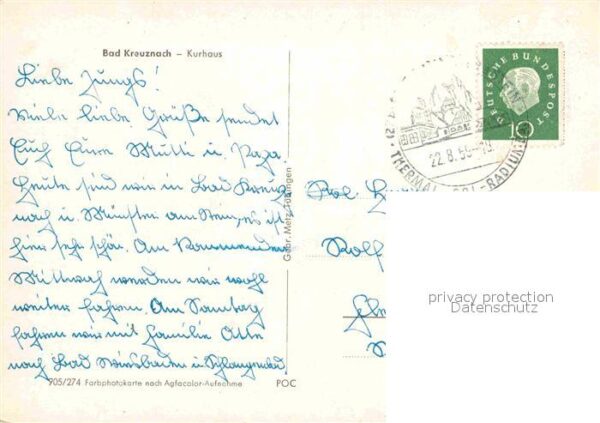 Bad Kreuznach – Kurhaus
Liebe Jungs!
Viele liebe Grüße sendet
Euch Eure Mutti u. Papa.
Heute sind wir in Bad Kreuz-
nach u. Münster am Stein, es ist
hier sehr schön. Am kommenden
Mittwoch werden wir wohl
weiter fahren. Am Samstag
fahren wir mit Familie Otte
nach Bad Wiesbaden u. Schlangenbad.
905/274 Farbphotokarte nach Agfacolor-Aufnahme
POC
Gebr. Metz, Tübingen
DEUTSCHE BUNDESPOST
10
22.8.59-19
THERMAL-SOL-RADIUM
Rolf
privacy protection
Datenschutz